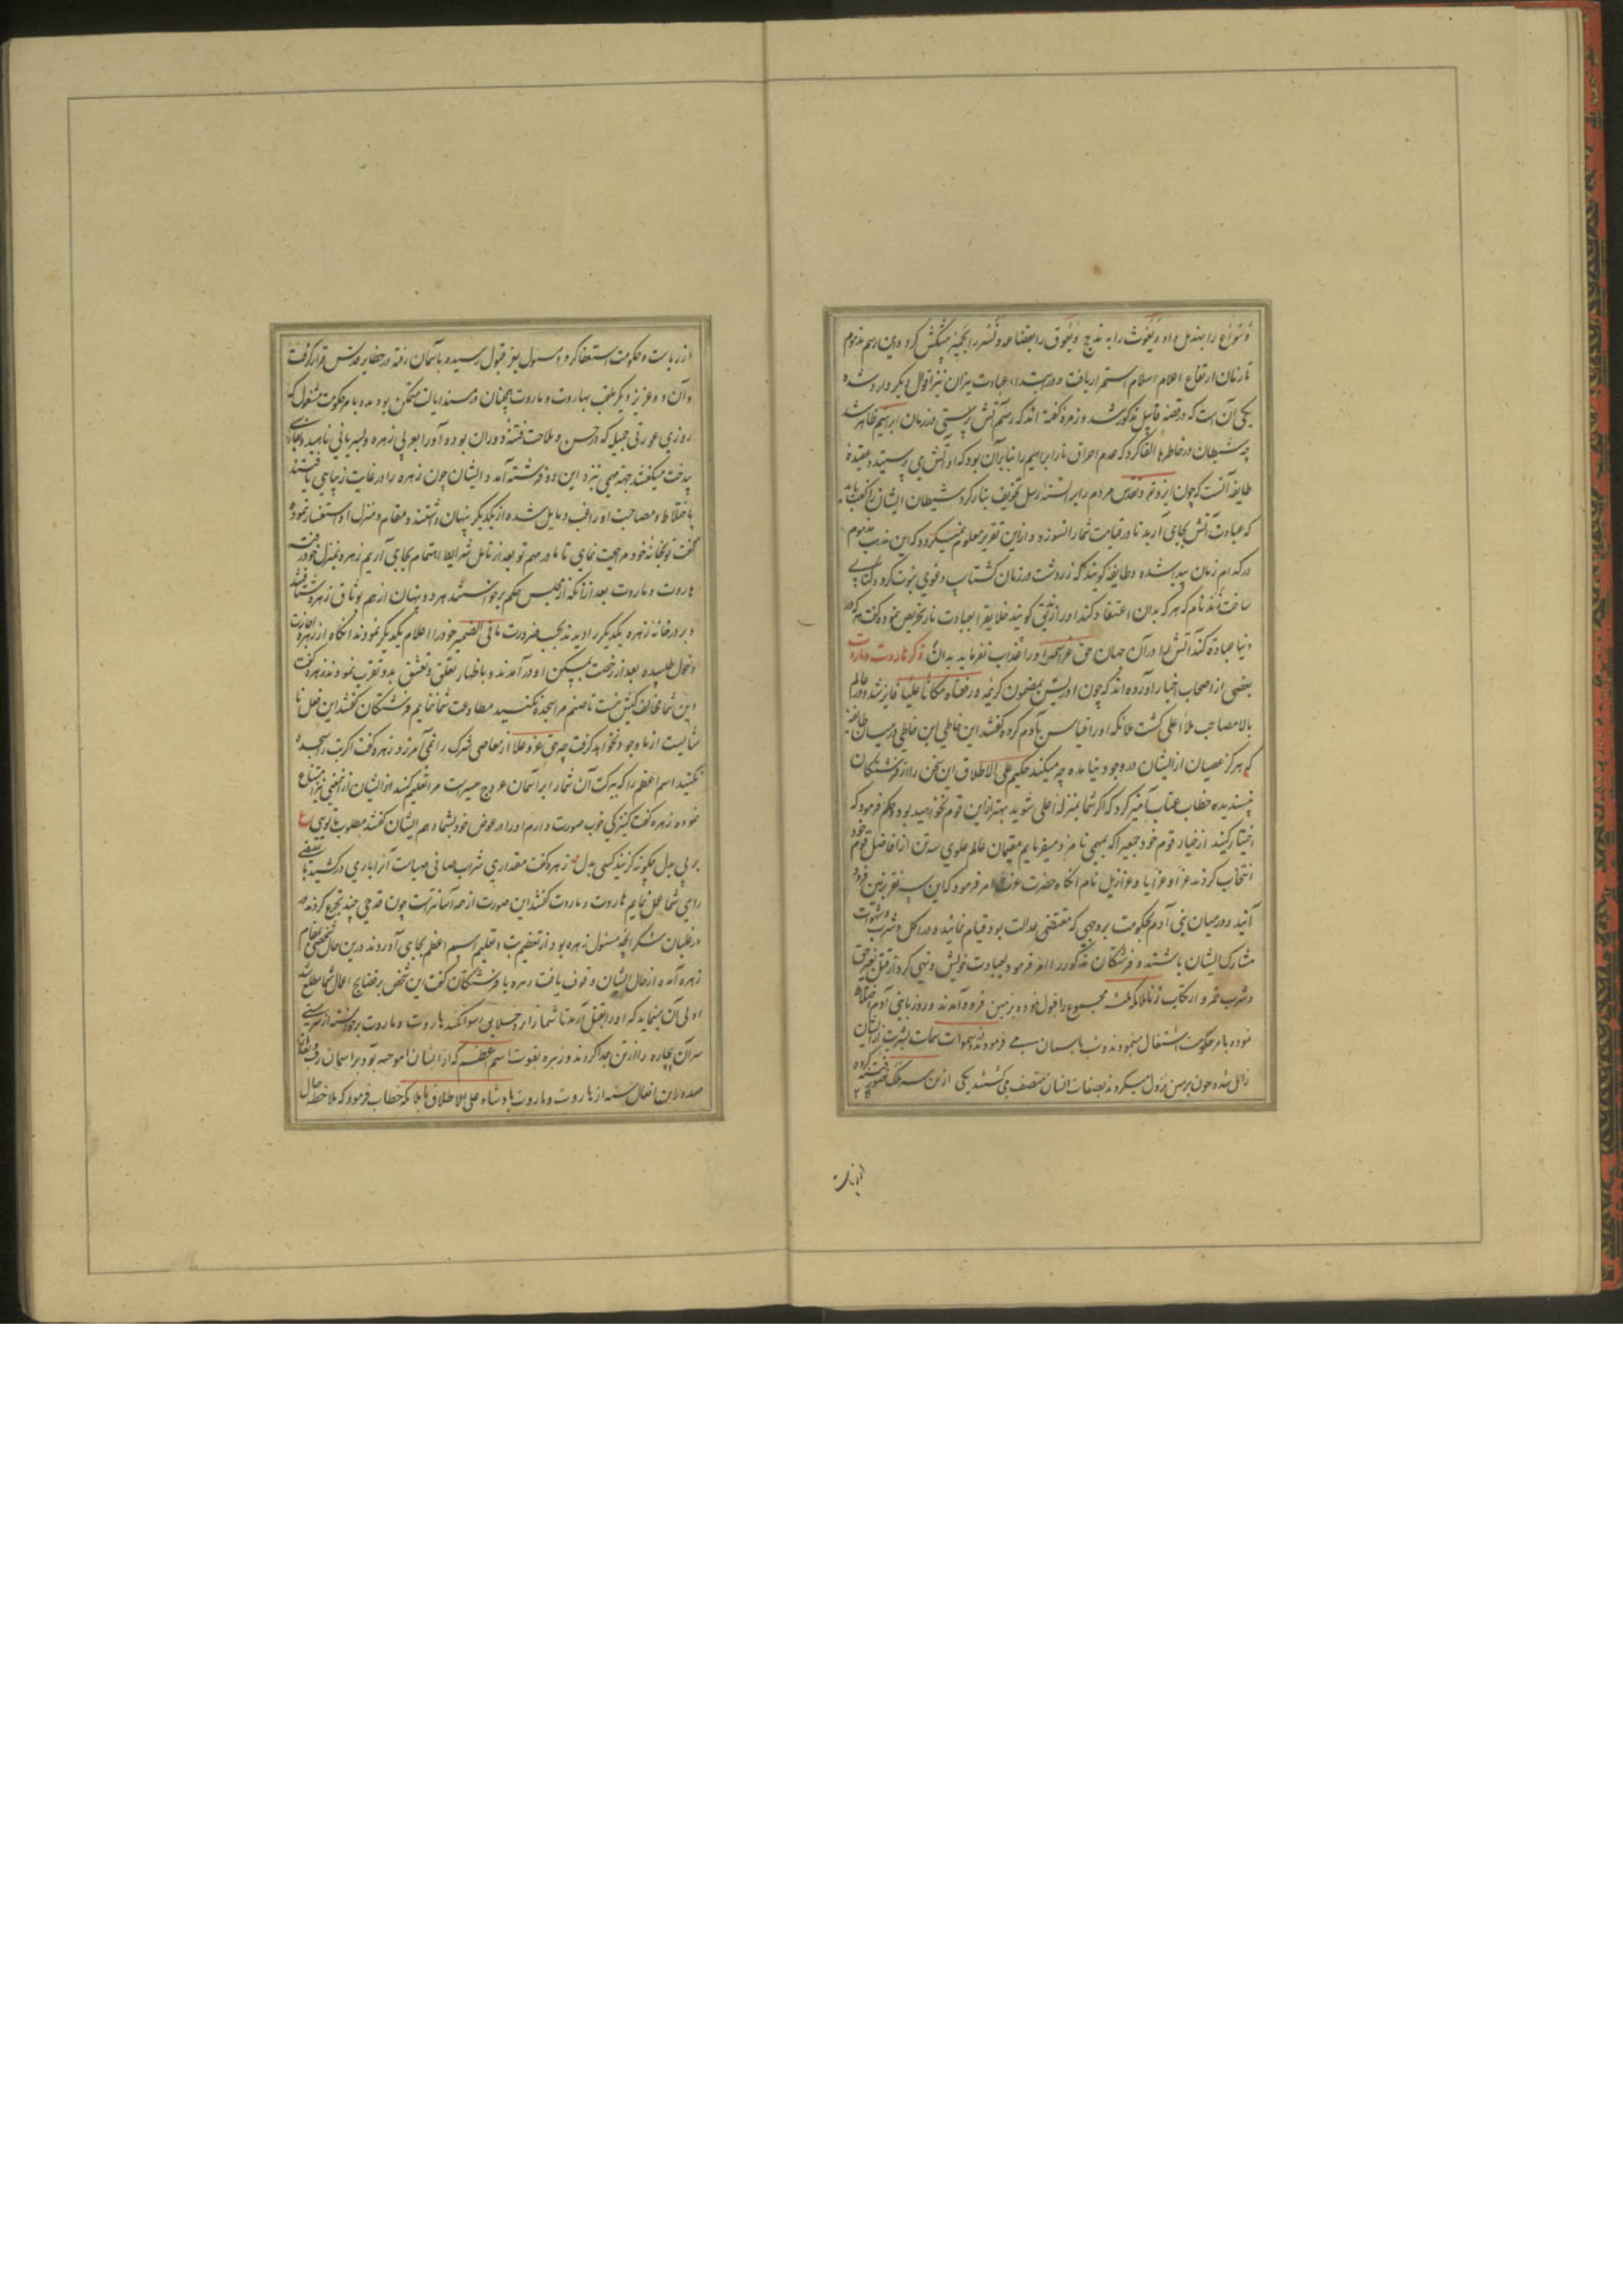 و سواع را بهذیل داد و یغوث را به مذحج و یعوق را بقضاعه و نسر را بحمیر پیشکش کرد و این رسم مذموم
تا زمان ارتفاع اعلام اسلام استمرار یافت و در ابتداء عبادت نیران نیز اقوال دیگر وارد شده
یکی آن است که در قصه قابیل مذکور شد و زمره گفته اند که رسم آتش پرستی در زمان ابراهیم ظاهر شد
چه شیطان در خاطرها القا کرد که عدم احراق نار ابراهیم را بنابر آن بود که او آتش می پرستید و عقیده
طایفه آنست که چون ایزد تعالی و تقدس مردم را بر السنه رسل تخویف بنار کرد شیطان ایشان را گفت باید
که عبادت آتش بجای آرید تا در قیامت شما را نسوزد و از این تقریر معلوم نمیگردد که این مذهب مذموم
در کدام زمان پیدا شده و طایفه گویند که زردشت در زمان گشتاسپ دعوی نبوت کرد و کتابی
ساخت زند نام که هر که بدان اعتقاد کند او را زندیق گویند خلایق را بعبادت نار تحریص نمود و گفت هر که در
دنیا عبادت کند آتش را در آن جهان حق عز اسمه او را عذاب نفرماید بدان ذکر هاروت و ماروت
بعضی از اصحاب اخبار آورده اند که چون ادریس بمضمون کریمه و رفعناه مکانا علیا فایز شد و در عالم
بالا مصاحب ملاء اعلی گشت ملائکه او را قیاس بآدم کرده گفتند این خاطی ابن خاطی در میان طایفه
که هرگز عصیان از ایشان در وجود نیامده چه میکند حکیم علی الاطلاق این سخن را از فرشتگان
نپسندیده خطاب عتاب آمیز کرد که اگر شما بمنزله اهل شوید بهتر از این قوم نخواهید بود و حکم فرمود که
اختیار کنید از خیار قوم خود جمعی را که بمهمی نامزد میفرمایم مقیمان عالم علوی سه تن از افاضل قوم خود
انتخاب کردند عزا و عزایا و عزازیل نام آنگاه حضرت عزت امر فرمود که این سه نفر بزمین فرود
آیند و در میان بنی آدم بحکومت بر وجهی که مقتضی عدالت بود قیام نمایند و در اکل و شرب و شهوات
مشارک ایشان باشند و فرشتگان مذکور را امر فرمود بعبادت خویش و نهی کرد از قتل بغیر حق
و شرب خمر و ارتکاب زنا ملائکه ثلثه مجموع را قبول نموده بزمین فرود آمدند و روز با بنی آدم اختلاط
نموده بامر حکومت اشتغال مینمودند و شب بآسمان می فرمودند و شهوات سمات بشریت از ایشان
زایل شده چون بزمین نزول میکردند بصفات انسان متصف می گشتند یکی از این سه ملک تصور کرده
از ریاست و حکومت استعفا کرد و مسئول بعز قبول رسیده بآسمان رفته در حظایر قدس قرار گرفت
و آن دو عزیز دیگر ملقب بهاروت و ماروت همچنان در مسند ایالت متمکن بودند و بامر حکومت مشغول که
روزی عورتی جمیله که در حسن و ملاحت فتنه دوران بود و او را بعربی زهره و بسریانی ناهید و بفارسی
بیدخت میگفتند جهة مهمی نزد این دو فرشته آمد و ایشان چون زهره را در غایت زیبایی یافتند
باختلاط و مصاحبت او راغب و مایل شده از یکدیگر پنهان داشتند و مقام و منزل او استفسار نموده
گفت تو بخانه خود مراجعت نمای تا ما در مهم تو بعد از تامل شرایط اهتمام بجای آریم زهره بمنزل خود رفت
هاروت و ماروت بعد از آنکه از مجلس حکم برخاستند هر دو پنهان از هم بوثاق زهره شتافتند
و بر در خانه زهره یکدیگر را دیدند بحسب ضرورت ما فی الضمیر خود را اعلام یکدیگر نمودند آنگاه از زهره اجازت
دخول طلبیده بعد از رخصت بمسکن او در آمدند و باظهار تعلق و تعشق بدو تقرب نمودند زهره گفت
دین شما مخالف کیش منست تا صنم مرا سجده نکنید مطاوعت شما ننمایم فرشتگان گفتند این فعل نا
شایست از ما وجود نخواهد گرفت چه حق عز و علا از معاصی شرک را نمی آمرزد زهره گفت اگر بت را سجده
نکنید اسم اعظم را که ببرکت آن شما را بر آسمان عروج میسر است مرا تعلیم کنید ایشان از این معنی نیز امتناع
نمودند زهره گفت کنیزکی خوب صورت دارم او را در عوض خود بشما دهم ایشان گفتند مطلوب ما تویی ع
بر بی بدل چگونه گزیند کسی بدل زهره گفت مقداری شراب صافی مهیاست آنرا باری در کشید تا بمقتضی
رای شما عمل نمایم هاروت و ماروت گفتند این صورت از همه آسانتر است چون قدحی چند تجرع کردند
در غلیان سکر آنچه مسئول زهره بود از تعظیم بت و تعلیم اسم اعظم بجای آوردند در این حال شخصی بمقام
زهره آمده از حال ایشان وقوف یافت زهره با فرشتگان گفت این شخص بر فضایح اعمال شما مطلع شد
اولی آن مینماید که او را بقتل آرید تا شما را در خلایق رسوا نکند هاروت و ماروت برخاسته از سر مستی
سر آن بیچاره را از تن جدا کردند و زهره بقوت اسم اعظم که از ایشان آموخته بود بر آسمان رفت بعد از
صدور این افعال شنیعه از هاروت و ماروت پادشاه علی الاطلاق با ملائکه خطاب فرمود که ملاحظه حال
از ریاست